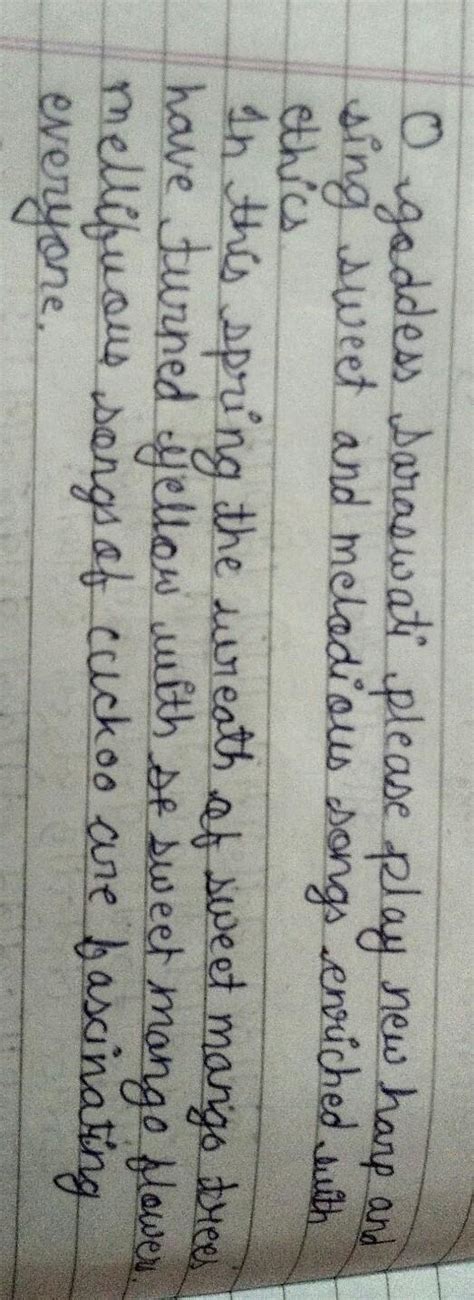 O goddess saraswati please play new harp and
sing sweet and melodious songs enriched with
ethics
In this spring the wreath of sweet mango trees
have turned yellow with se sweet mango flower.
mellifuous songs of cuckoo are fascinating
everyone.